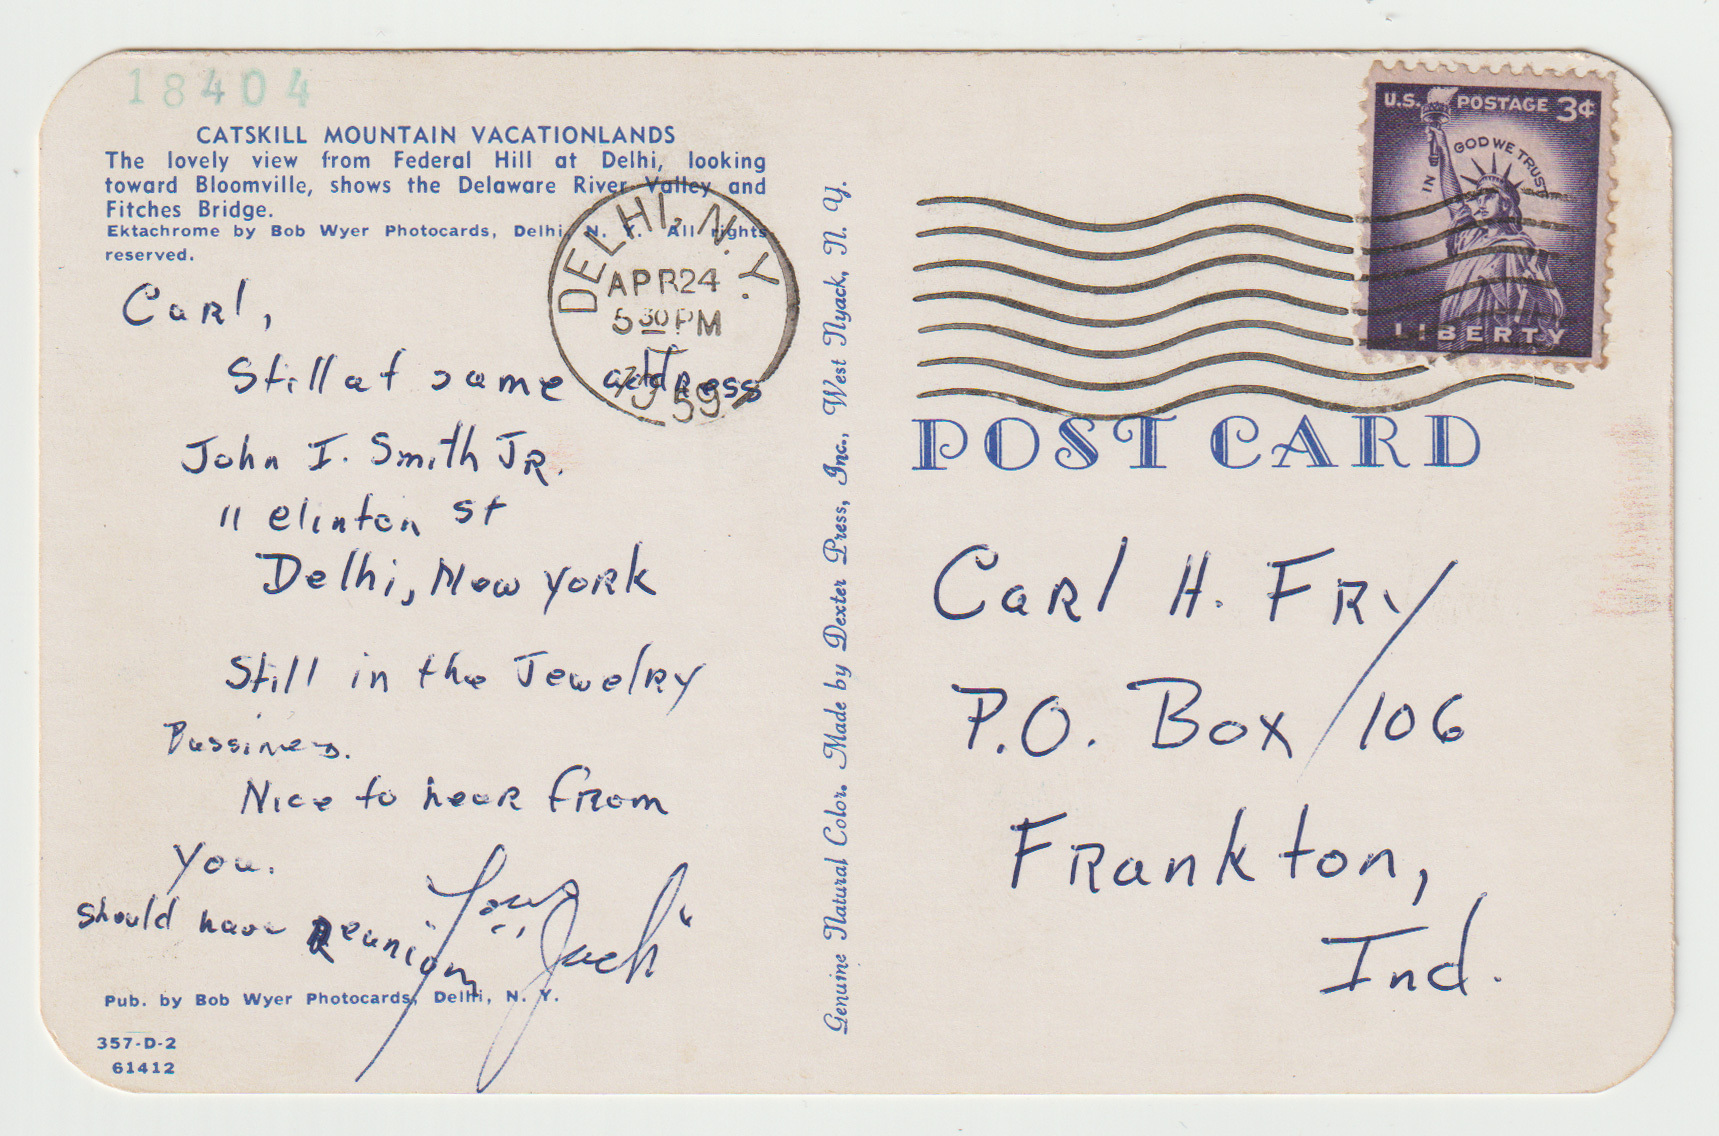 18404
CATSKILL MOUNTAIN VACATIONLANDS
The lovely view from Federal Hill at Delhi, looking
toward Bloomville, shows the Delaware River Valley and
Fitches Bridge.
Ektachrome by Bob Wyer Photocards, Delhi, N. Y. All rights
reserved.
Carl,
Still at same address
John I. Smith JR.
11 Clinton St
Delhi, New York
Still in the Jewelry
Bussiness.
Nice to hear from
you.
should have Reunion
"Jack"
Pub. by Bob Wyer Photocards, Delhi, N. Y.
357-D-2
61412
DELHI, N.Y.
APR 24
5 30 PM
1959
Genuine Natural Color. Made by Dexter Press, Inc., West Nyack, N. Y.
U.S. POSTAGE 3¢
IN GOD WE TRUST
LIBERTY
POST CARD
Carl H. Fry
P.O. Box 106
Frankton,
Ind.